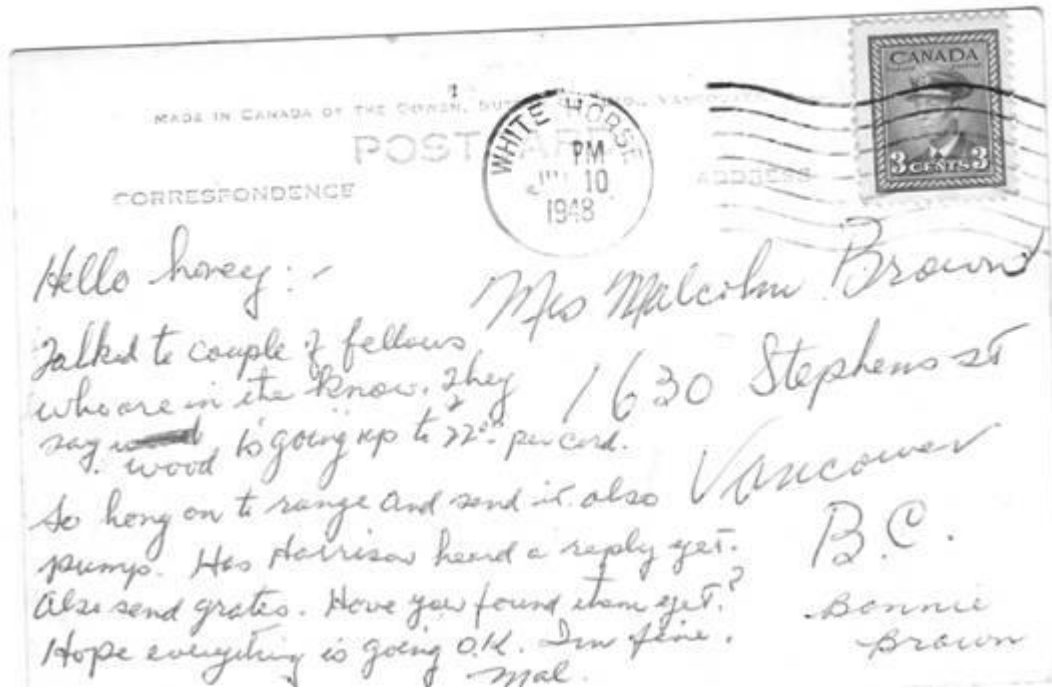 CANADA
3 CENTS 3
MADE IN CANADA BY THE COWAN, VANCOUVER
WHITE HORSE
PM
10
1948
POST CARD
CORRESPONDENCE
ADDRESS
Hello honey: -
Talked to couple of fellows
who are in the know. They
say wood is going up to 22.00 per cord.
So hang on to range and send it. also
pump. Has Harrison heard a reply yet.
Also send grates. Have you found them yet?
Hope everything is going O.K. I'm fine.
Mal.
Mrs Malcolm Brown
1630 Stephens St
Vancouver
B.C.
Bonnie
Brown